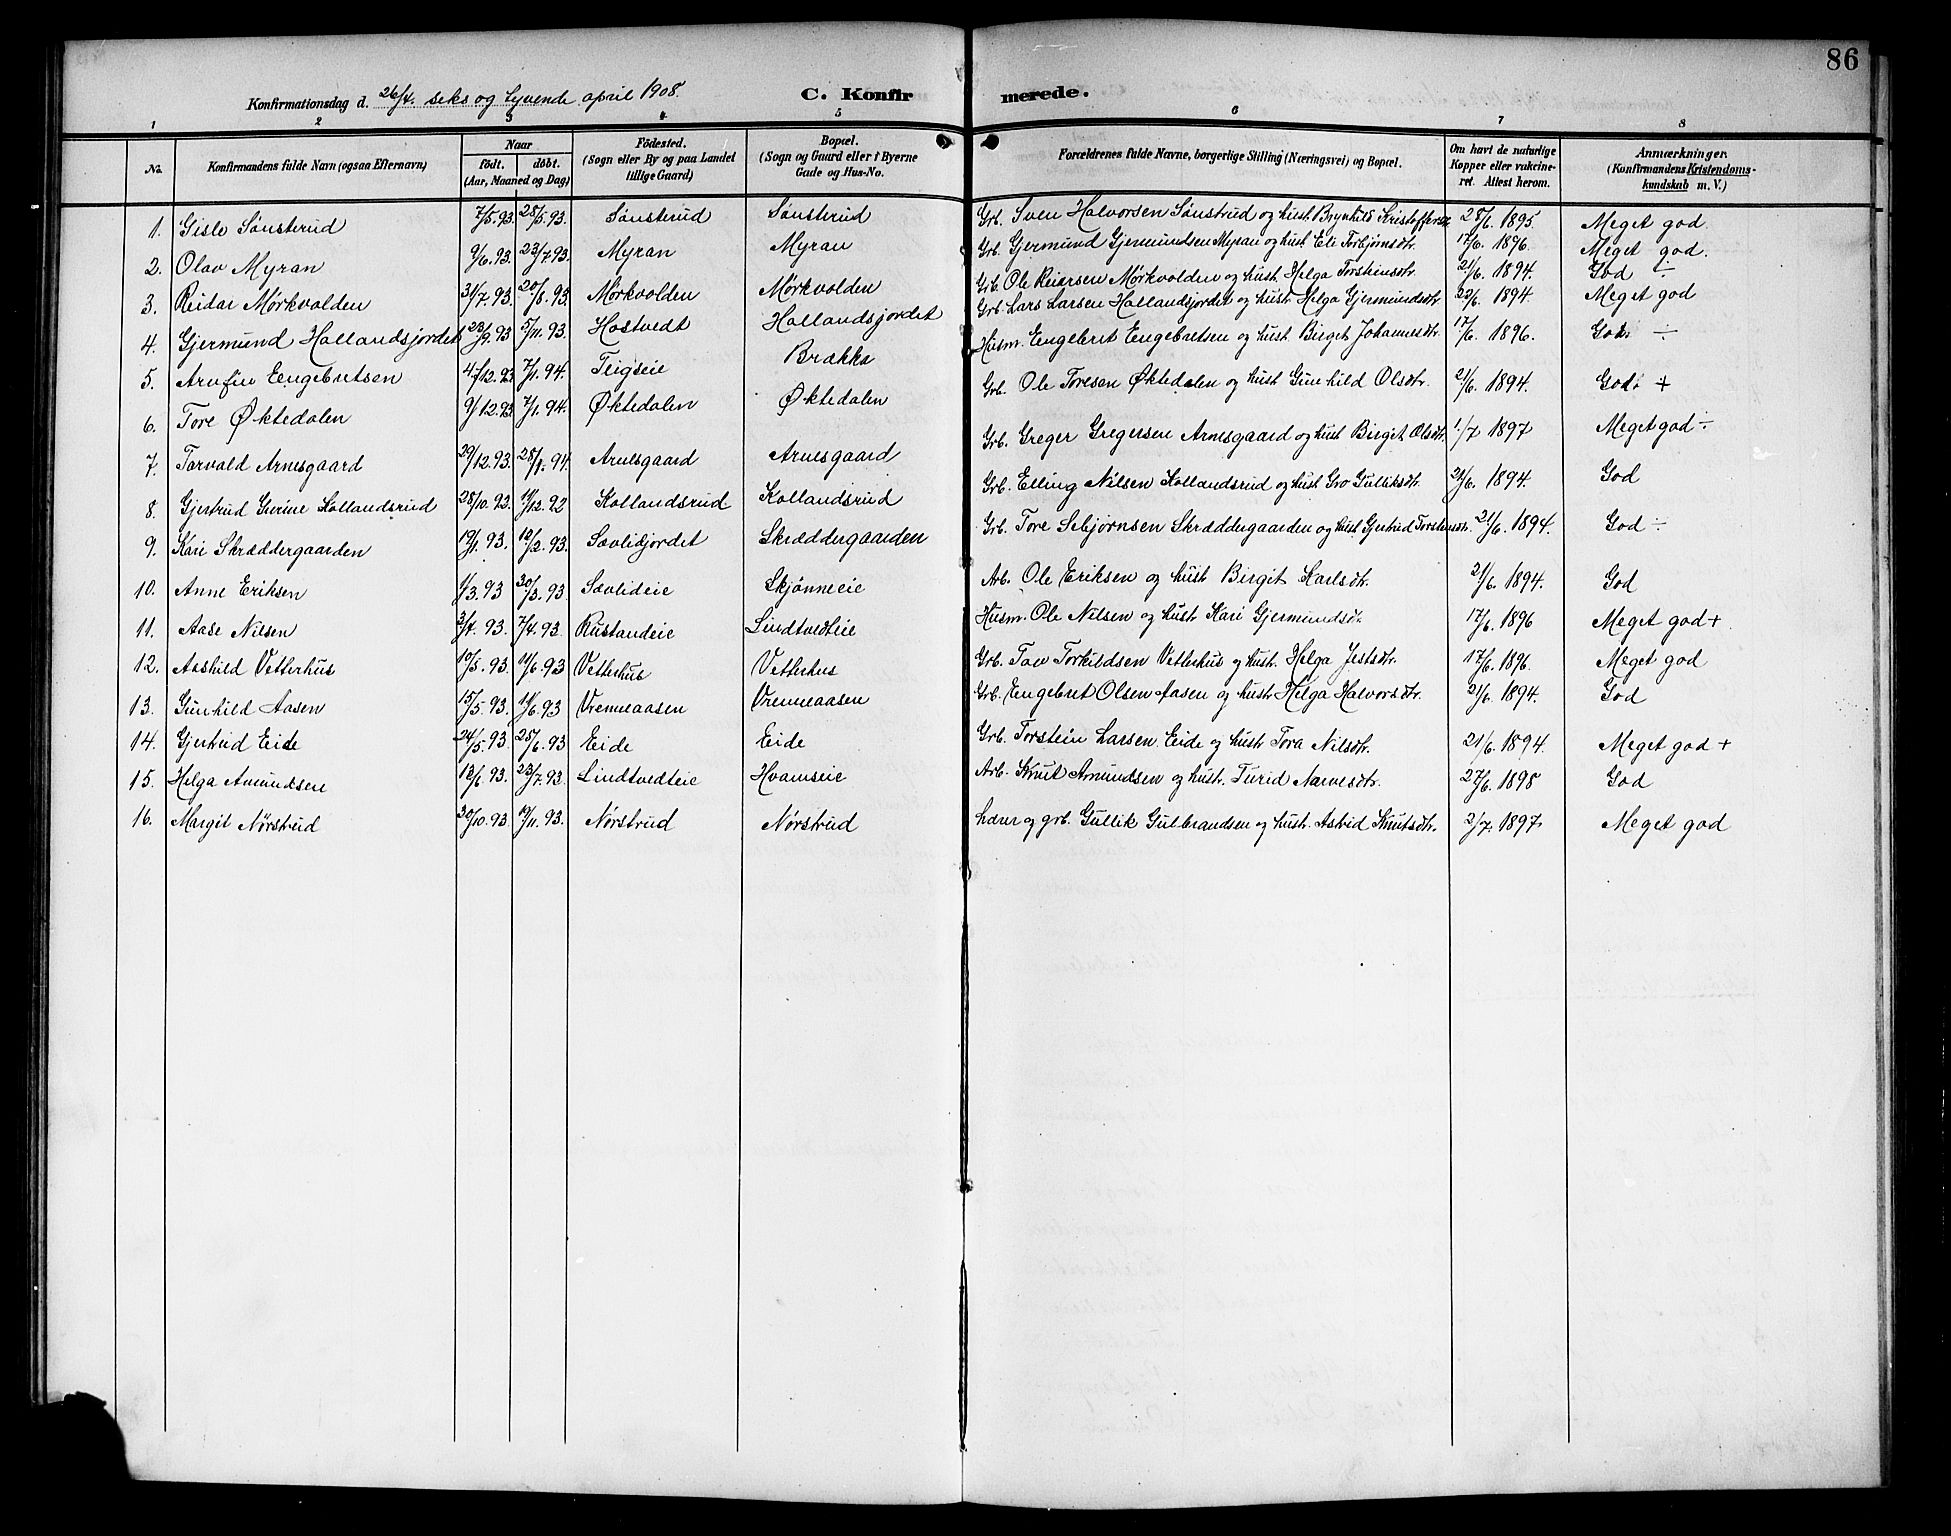 86
Konfirmationsdag d. 26/4. seks og tyvende april 1908. C. Konfirmerede.
1 2 3 4 5 6 7 8
No. Konfirmandens fulde Navn (ogsaa Efternavn) Naar födt. döbt. (Aar, Maaned og Dag) Födested. (Sogn eller By og paa Landet tillige Gaard) Bopæl. (Sogn og Gaard eller i Byerne Gade og Hus-No. Forældrenes fulde Navne, borgerlige Stilling (Næringsvei) og Bopæl. Om havt de naturlige Kopper eller vakcineret. Attest herom. Anmærkninger. (Konfirmandens Kristendomskundskab m. V.)
1. Gisle Sønsterud 7/5.93. 28/5.93. Sønsterud Sønsterud Grb. Sven Halvorsen Sønstrud og hust. Brynhild Kristoffersdtr. 28/6. 1895. Meget god.
2. Olav Myran 9/6.93. 23/7.93. Myran Myran Grb. Gjermund Gjermundsen Myran og hust. Eli Torbjørnsdtr. 17/6. 1896. Meget god.
3. Reidar Mørkvolden 31/7.93. 20/8.93. Mørkvolden Mørkvolden Grb. Ole Reiersen Mørkvolden og hust. Helga Torsteinsdtr. 21/6. 1894. God ÷
4. Gjermund Hollandsjordet 23/9.93 5/11.93. Hostvedt Hollandsjordet Grb. Lars Larsen Hollandsjordet og hust. Helga Gjermundsdtr. 22/6. 1894. Meget god
5. Arnfin Engebretsen 4/12.93 7/1.94. Teigseie Brække Husm. Engebret Engebretsen og hust. Birgit Johannesdtr. 17/6. 1896. God ÷
6. Tore Øktedalen 9/12.93 7/1.94. Øktedalen Øktedalen Grb. Ole Toresen Øktedalen og hust. Gunhild Olsdtr. 21/6. 1894. God +
7. Torvald Arnesgaard 29/12.93. 28/1.94. Arnesgaard Arnesgaard Grb. Greger Gregersen Arnesgaard og hust. Birgit Olsdtr. 1/7 1897 Meget god ÷
8. Gjertrud Gurine Kollandsrud 28/10.92. 11/12.92 Kollandsrud Kollandsrud Grb. Elling Nilsen Kollandsrud og hust. Gro Gulliksdtr. 21/6. 1894. God
9. Kari Skræddergaarden 19/1.93. 12/2.93. Sævlidjordet Skræddergaarden Grb. Tore Sebjørnsen Skræddergaarden og hust. Gjertrud Torsteinsdtr. 21/6. 1894. God ÷
10. Anne Eriksen 1/3.93 30/3.93. Sævlideie Skjønneeie Arb. Ole Eriksen og hust. Birgit Karlsdtr. 21/6. 1894. God
11. Aase Nilsen 3/4.93. 7/4.93. Rustandeie Lindtvedteie Husm. Ole Nilsen og hust. Kari Gjermundsdtr. 17/6. 1896 Meget god +
12. Aashild Vetterhus 10/5.93. 11/6.93 Vetterhus Vetterhus Grb. Tov Torkildsen Vetterhus og hust. Helga Jestsdtr. 17/6. 1896. Meget god
13. Gunhild Aasen 15/5.93. 11/6.93 Vrenneaasen Vrenneaasen Grb. Engebret Olsen Aasen og hust. Helga Halvorsdtr. 21/6. 1894. God
14. Gjertrud Eide 24/5.93. 25/6.93 Eide Eide Grb. Torstein Larsen Eide og hust. Tora Nilsdtr. 21/6. 1894. Meget god +
15. Helga Amundsen 12/6.93. 23/7.93. Lindtvedteie Hvamseie Arb. Knut Amundsen og hust. Turid Narvesdtr. 27/6. 1898 God
16. Margit Nørstrud 30/10.93. 19/11.93. Nørstrud Nørstrud Lærer og grb. Gullik Gulbrandsen og hust. Astrid Knutsdtr. 2/7. 1897. Meget god